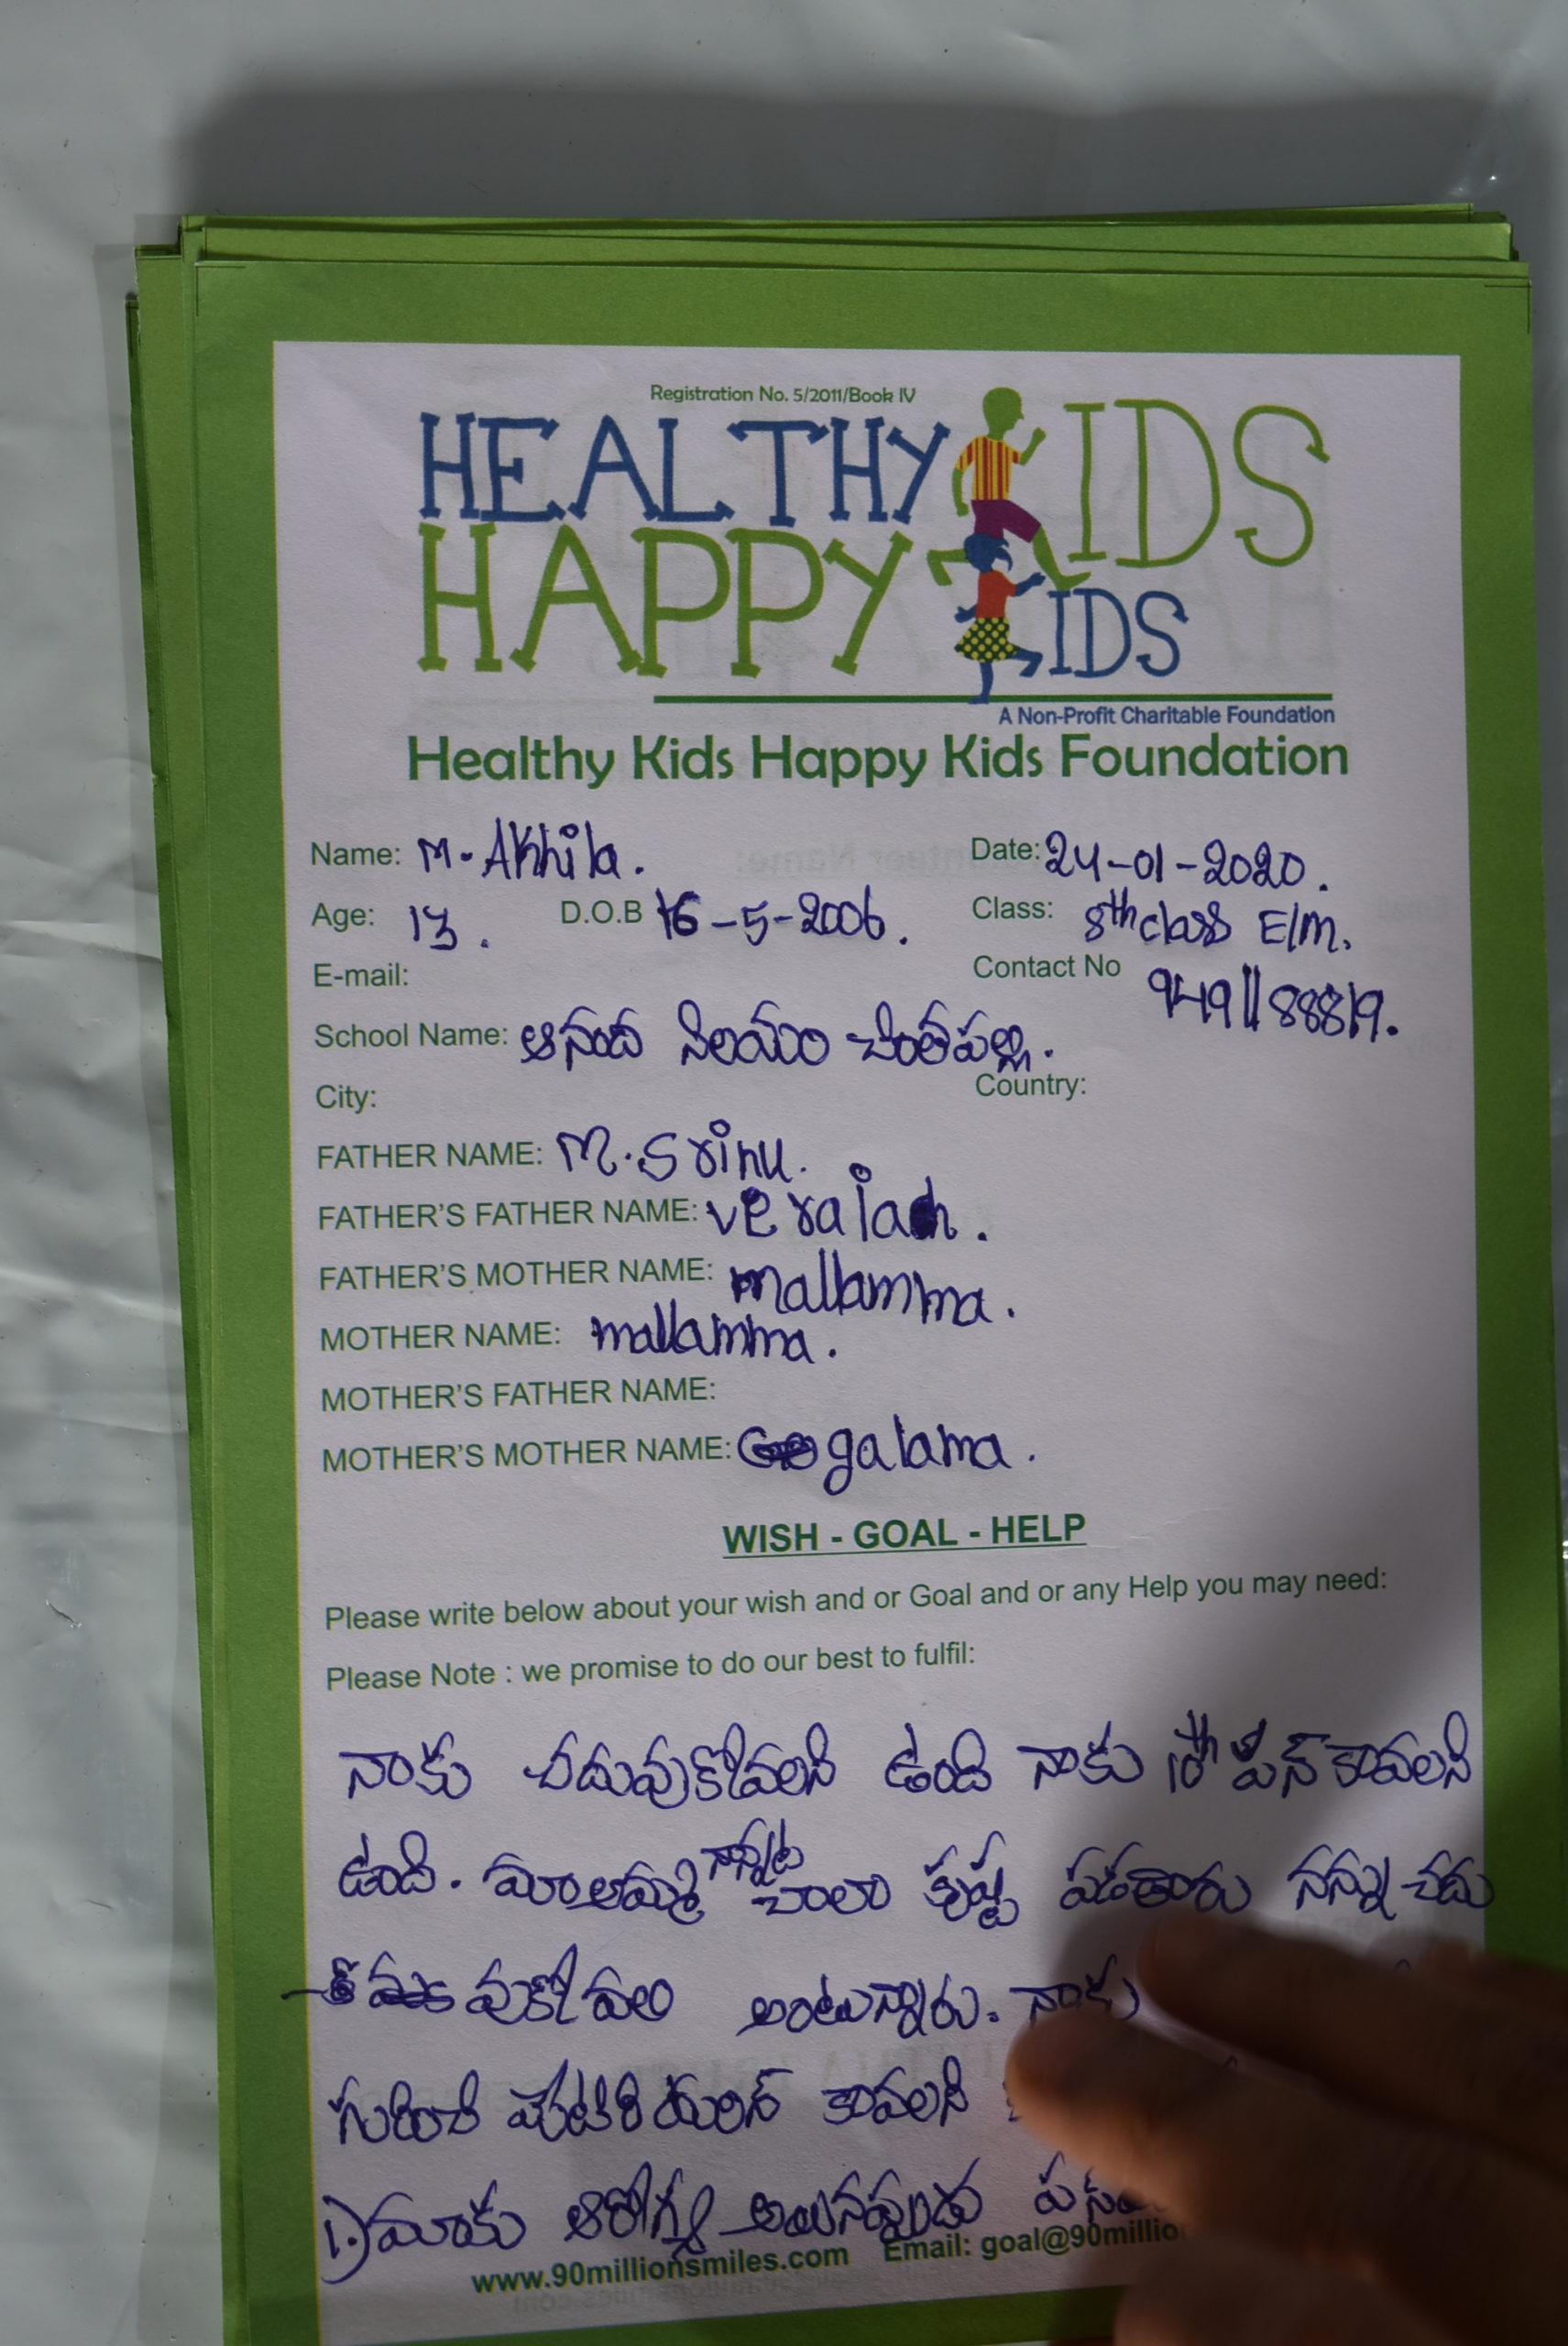 Registration No. 5/2011/Book IV
HEALTHY KIDS
HAPPY KIDS
A Non-Profit Charitable Foundation
Healthy Kids Happy Kids Foundation
Name: M. Akhila. Date: 24-01-2020.
Age: 13. D.O.B 16-5-2006. Class: 8th class E/m.
E-mail: Contact No 9491188819.
School Name: ఆనంద నిలయం చింతపల్లి.
City: Country:
FATHER NAME: M. Srinu.
FATHER'S FATHER NAME: veraiah.
FATHER'S MOTHER NAME: mallamma.
MOTHER NAME: mallamma.
MOTHER'S FATHER NAME:
MOTHER'S MOTHER NAME: galama.
WISH - GOAL - HELP
Please write below about your wish and or Goal and or any Help you may need:
Please Note : we promise to do our best to fulfil:
నాకు చదువుకోవలని ఉంది నాకు 10th పస్ కావలని
ఉంది. మా అమ్మ నాన్న చాలా కష్ట పడతారు నన్ను చదు
వుకోవాలి అంటున్నారు. నాకు
కావలని
1.) మాకు ఆరోగ్య అయినప్పుడు
www.90millionsmiles.com Email: goal@90millio